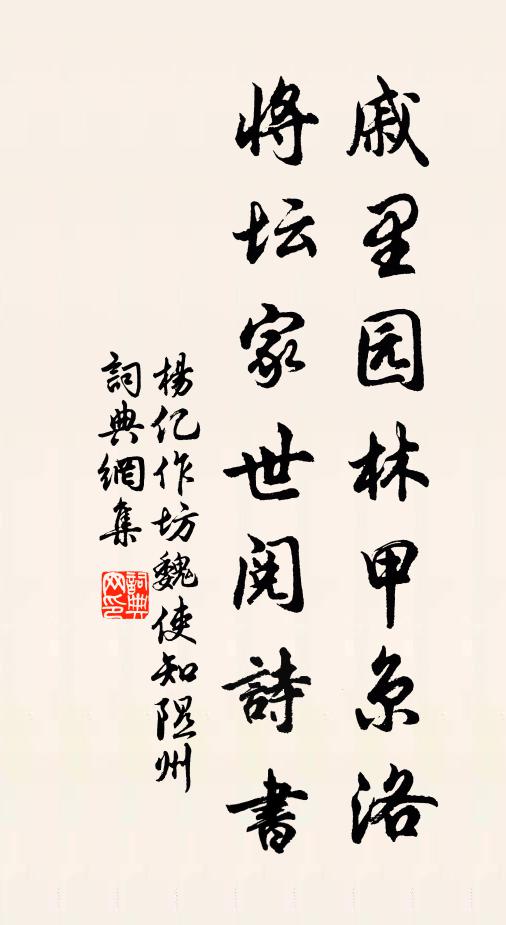 戚里园林甲京洛
将坛家世阅詩書
楊亿作坊魏使知隰州
詞典網集
詞典
网印